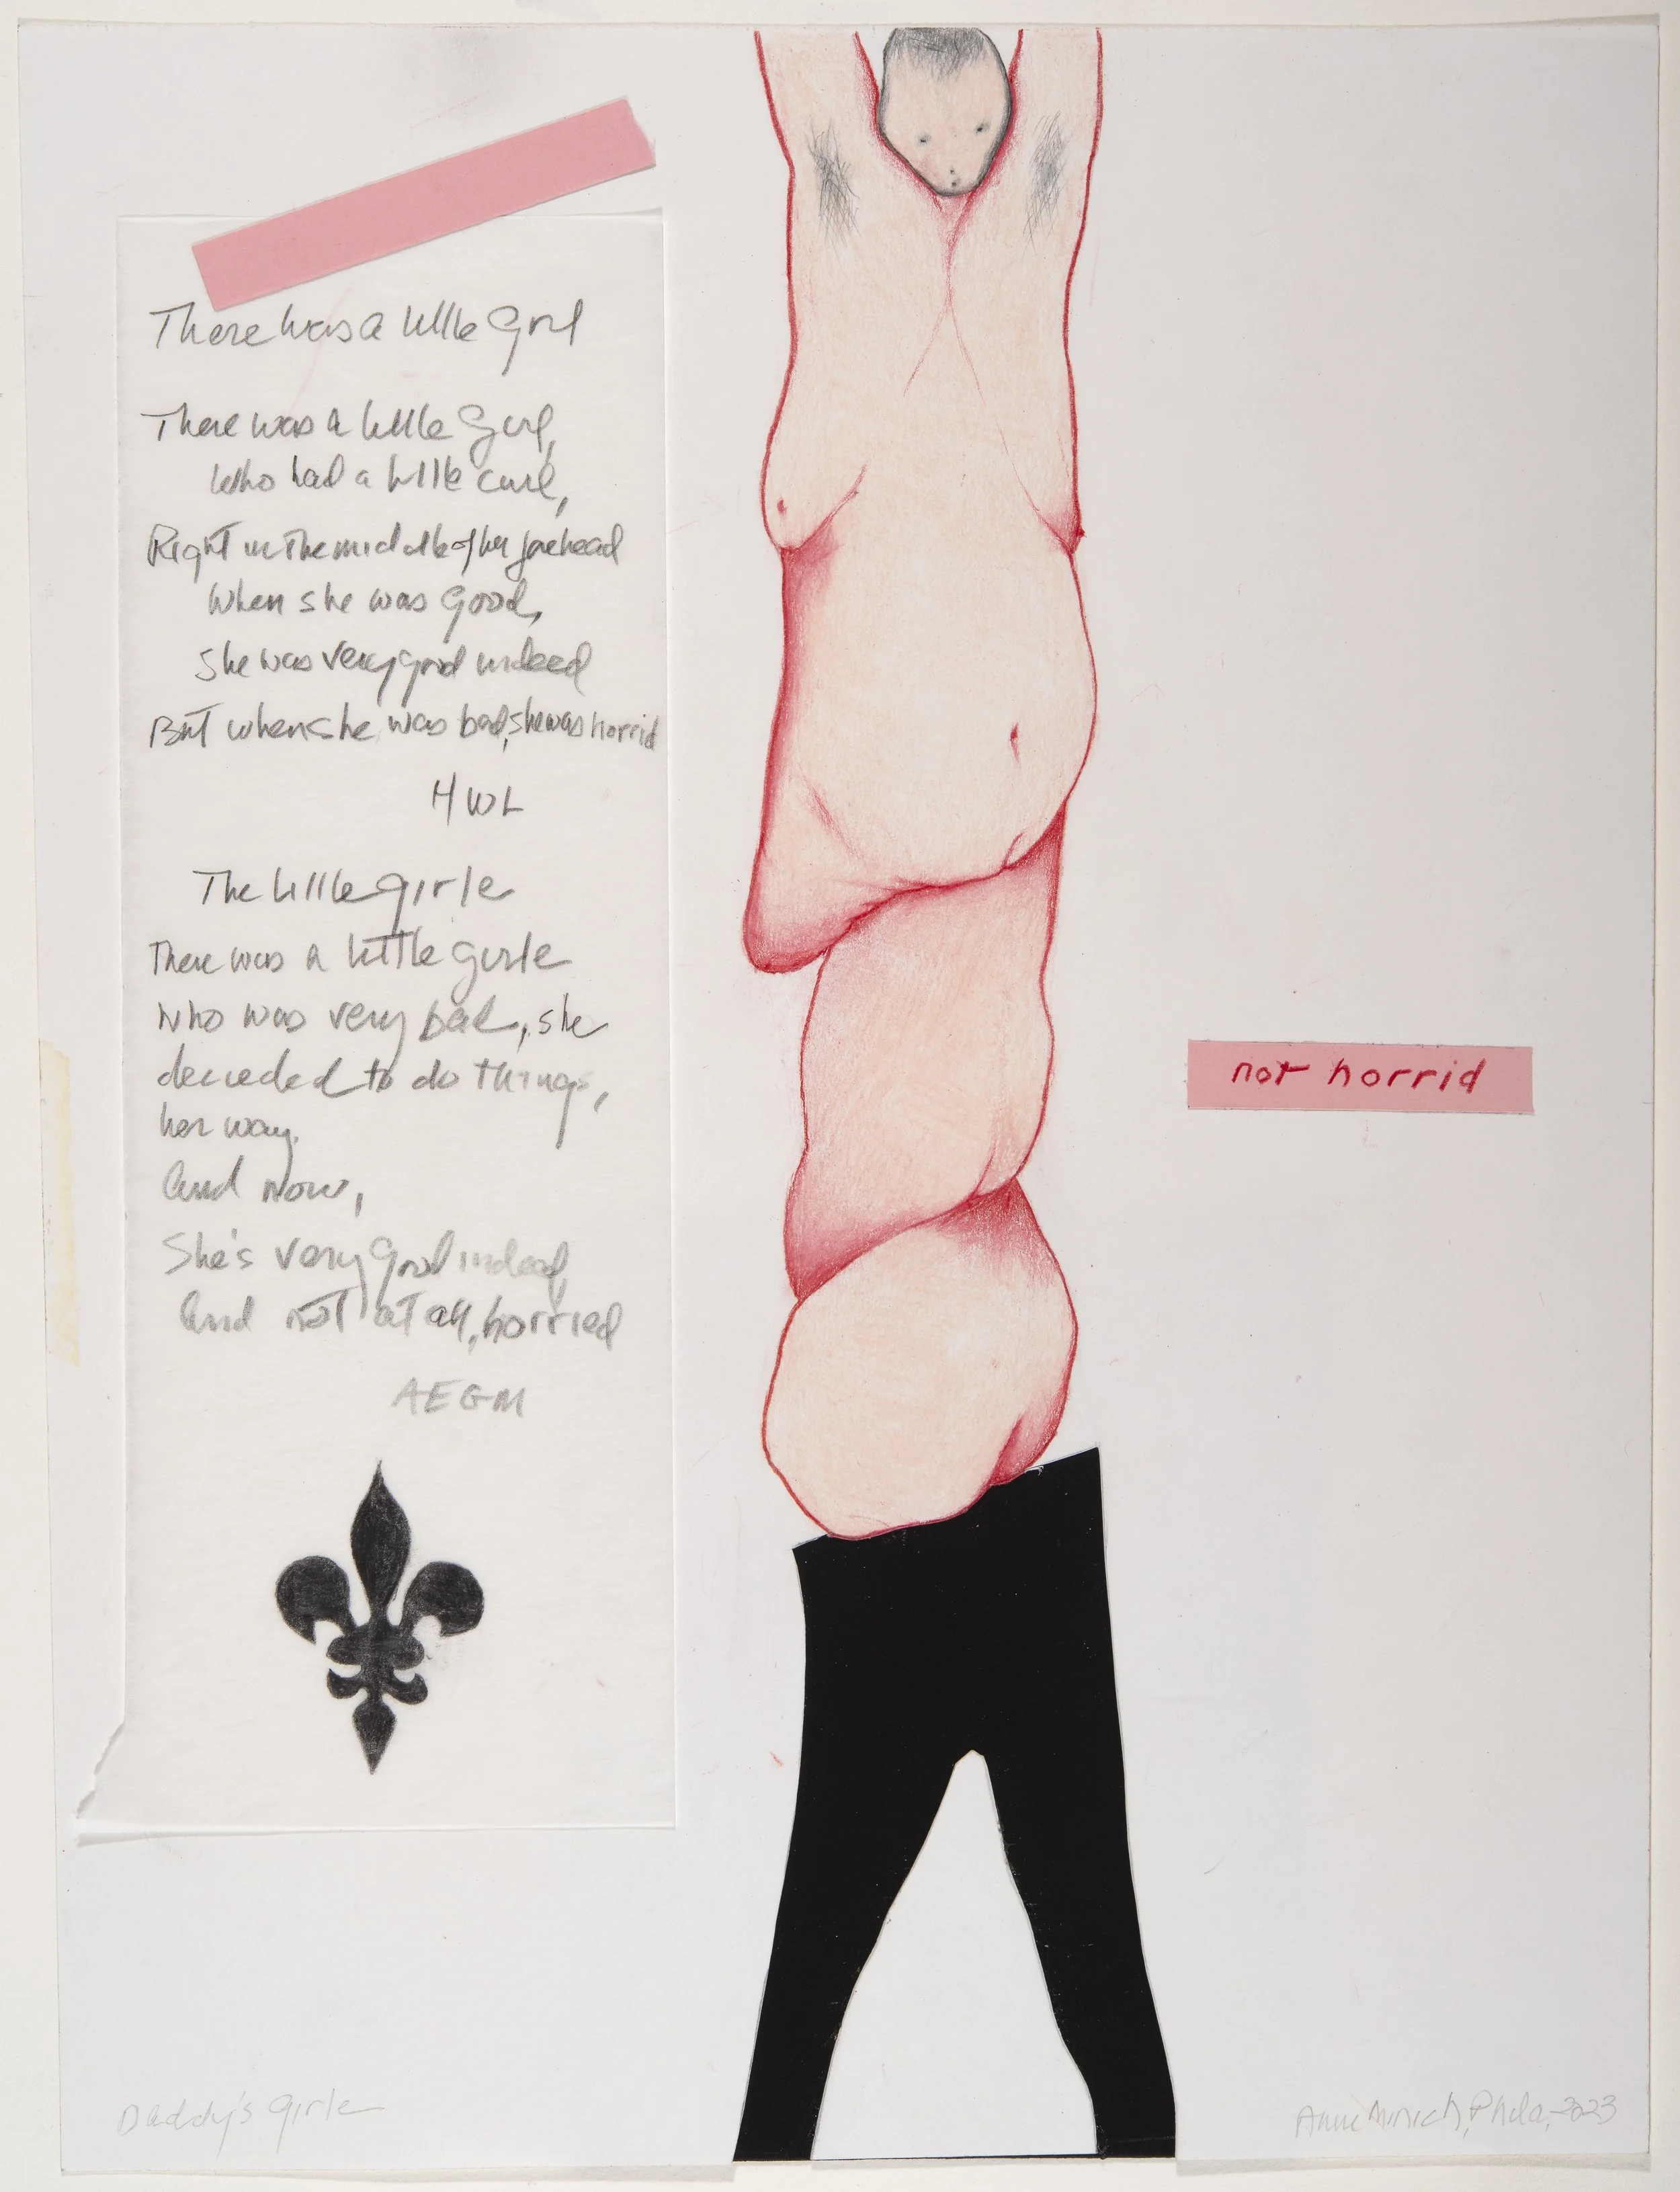 There was a little Girl
There was a little Girl,
Who had a little curl,
Right in the middle of her forehead
When she was Good,
She was very good indeed
But when she was bad, she was horrid
HWL
The little girle
There was a little girle
who was very bad, she
decieded to do things,
her way.
And now,
She's very Good indeed,
And not at all, horried
AEGM
not horrid
Daddy's Girle
Anne Minich, Phila, 2023